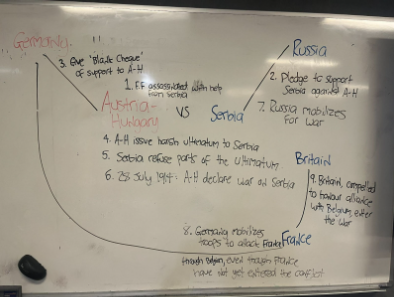 Germany
Russia
3. Give "Blank Cheque"
of support to A-H
1. FF assassinated with help
from Serbia
2. Pledge to support
Serbia against A-H
Austria-
Hungary
VS
Serbia
7. Russia mobilizes
for war
4. A-H issue harsh ultimatum to Serbia
5. Serbia refuse parts of the ultimatum
6. 28th July 1914: A-H declare war on Serbia
Britain
9. Britain, compelled
to honour alliance
with Belgium, enter
the war
8. Germany mobilizes
troops to attack France
France
through Belgium, even though France
have not yet entered the conflict